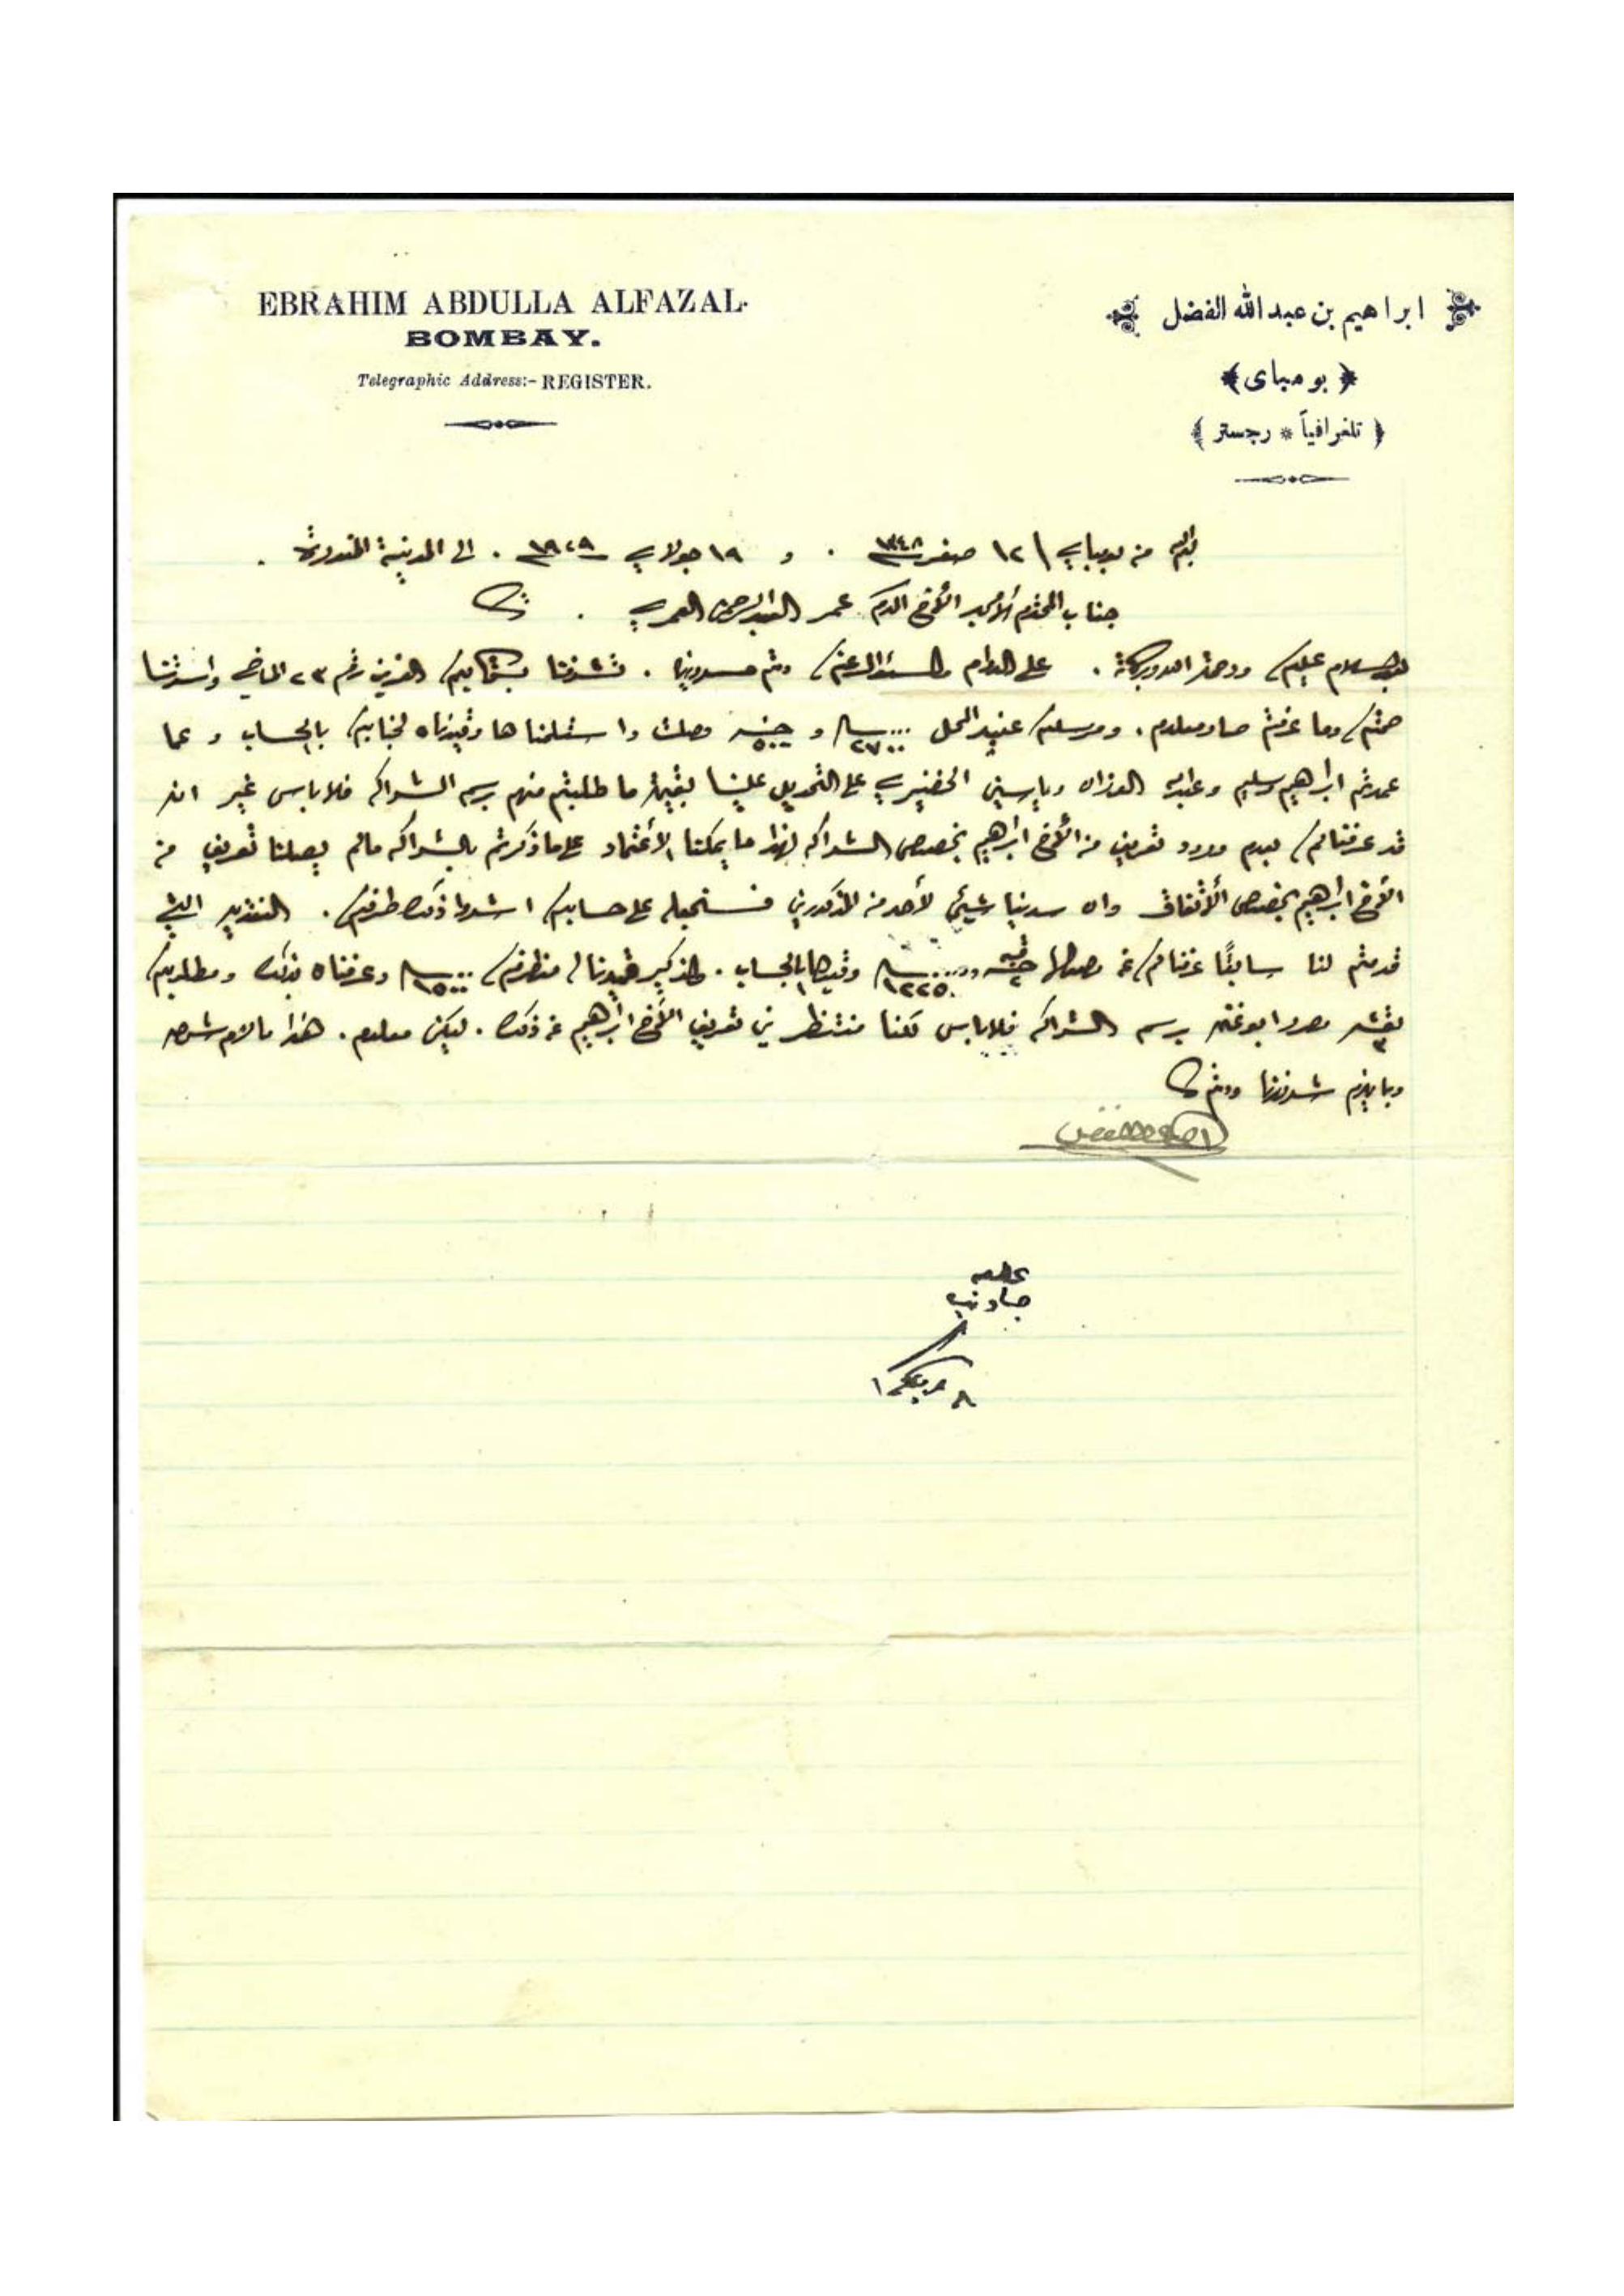 EBRAHIM ABDULLA ALFAZAL.
BOMBAY.
Telegraphic Address:- REGISTER.
ابراهيم بن عبد الله الفضل
﴿ بومباى ﴾
﴿ تلغرافياً * رجستر ﴾
من بومباي ١٢ صفر ١٣٤٨ . و ١٩ جولاي ١٩٢٩ . الى المدينة المنورة .
جناب المحترم الأمجد الأخ المكرم عمر العبد الرحمن العمري .
السلام عليكم ورحمة الله وبركاته . على الدوام والسئوال عنكم دمتم مسرورين . تشرفنا بكتابكم العزيز رقم ٢٣ الماضي واسرتنا
صحتكم وما عرفتم صار معلوم . ومرسلكم عنيد المحل ٢٧٠٠ و جنيه ٥٠٠ وصلت واستلمنا ها وقيدناه لجنابكم بالحساب و عما
عمدتم ابراهيم سليم وعبدالله الفوزان وياسين الخضيري على التحويل علينا بقيمة ما طلبتم منهم برسم الشراكه فلا باس غير انه
قد عرفناكم بعدم ورود تعريف من الأخ ابراهيم بخصوص الشراكه لهذا ما يمكننا الأعتماد على ما ذكرتم بالشراكه مالم يصلنا تعريف من
الأخ ابراهيم بخصوص الأتفاق وان سدينا شيئ لأحد من المذكورين فسنجعله على حسابكم اشعروا بذلك طرفكم .
قدمتم لنا سابقًا عرفناكم عن وصولها وقيدها بالحساب . ١٥٠٠ وعرفناه بذلك ومطلوبكم
برسم الشراكه فلا باس لكنا منتظرين تعريف الأخ ابراهيم عن ذلك . ليكن معلوم . هذا مالزم شرحه
وبما يلزم شرفونا ودمتم